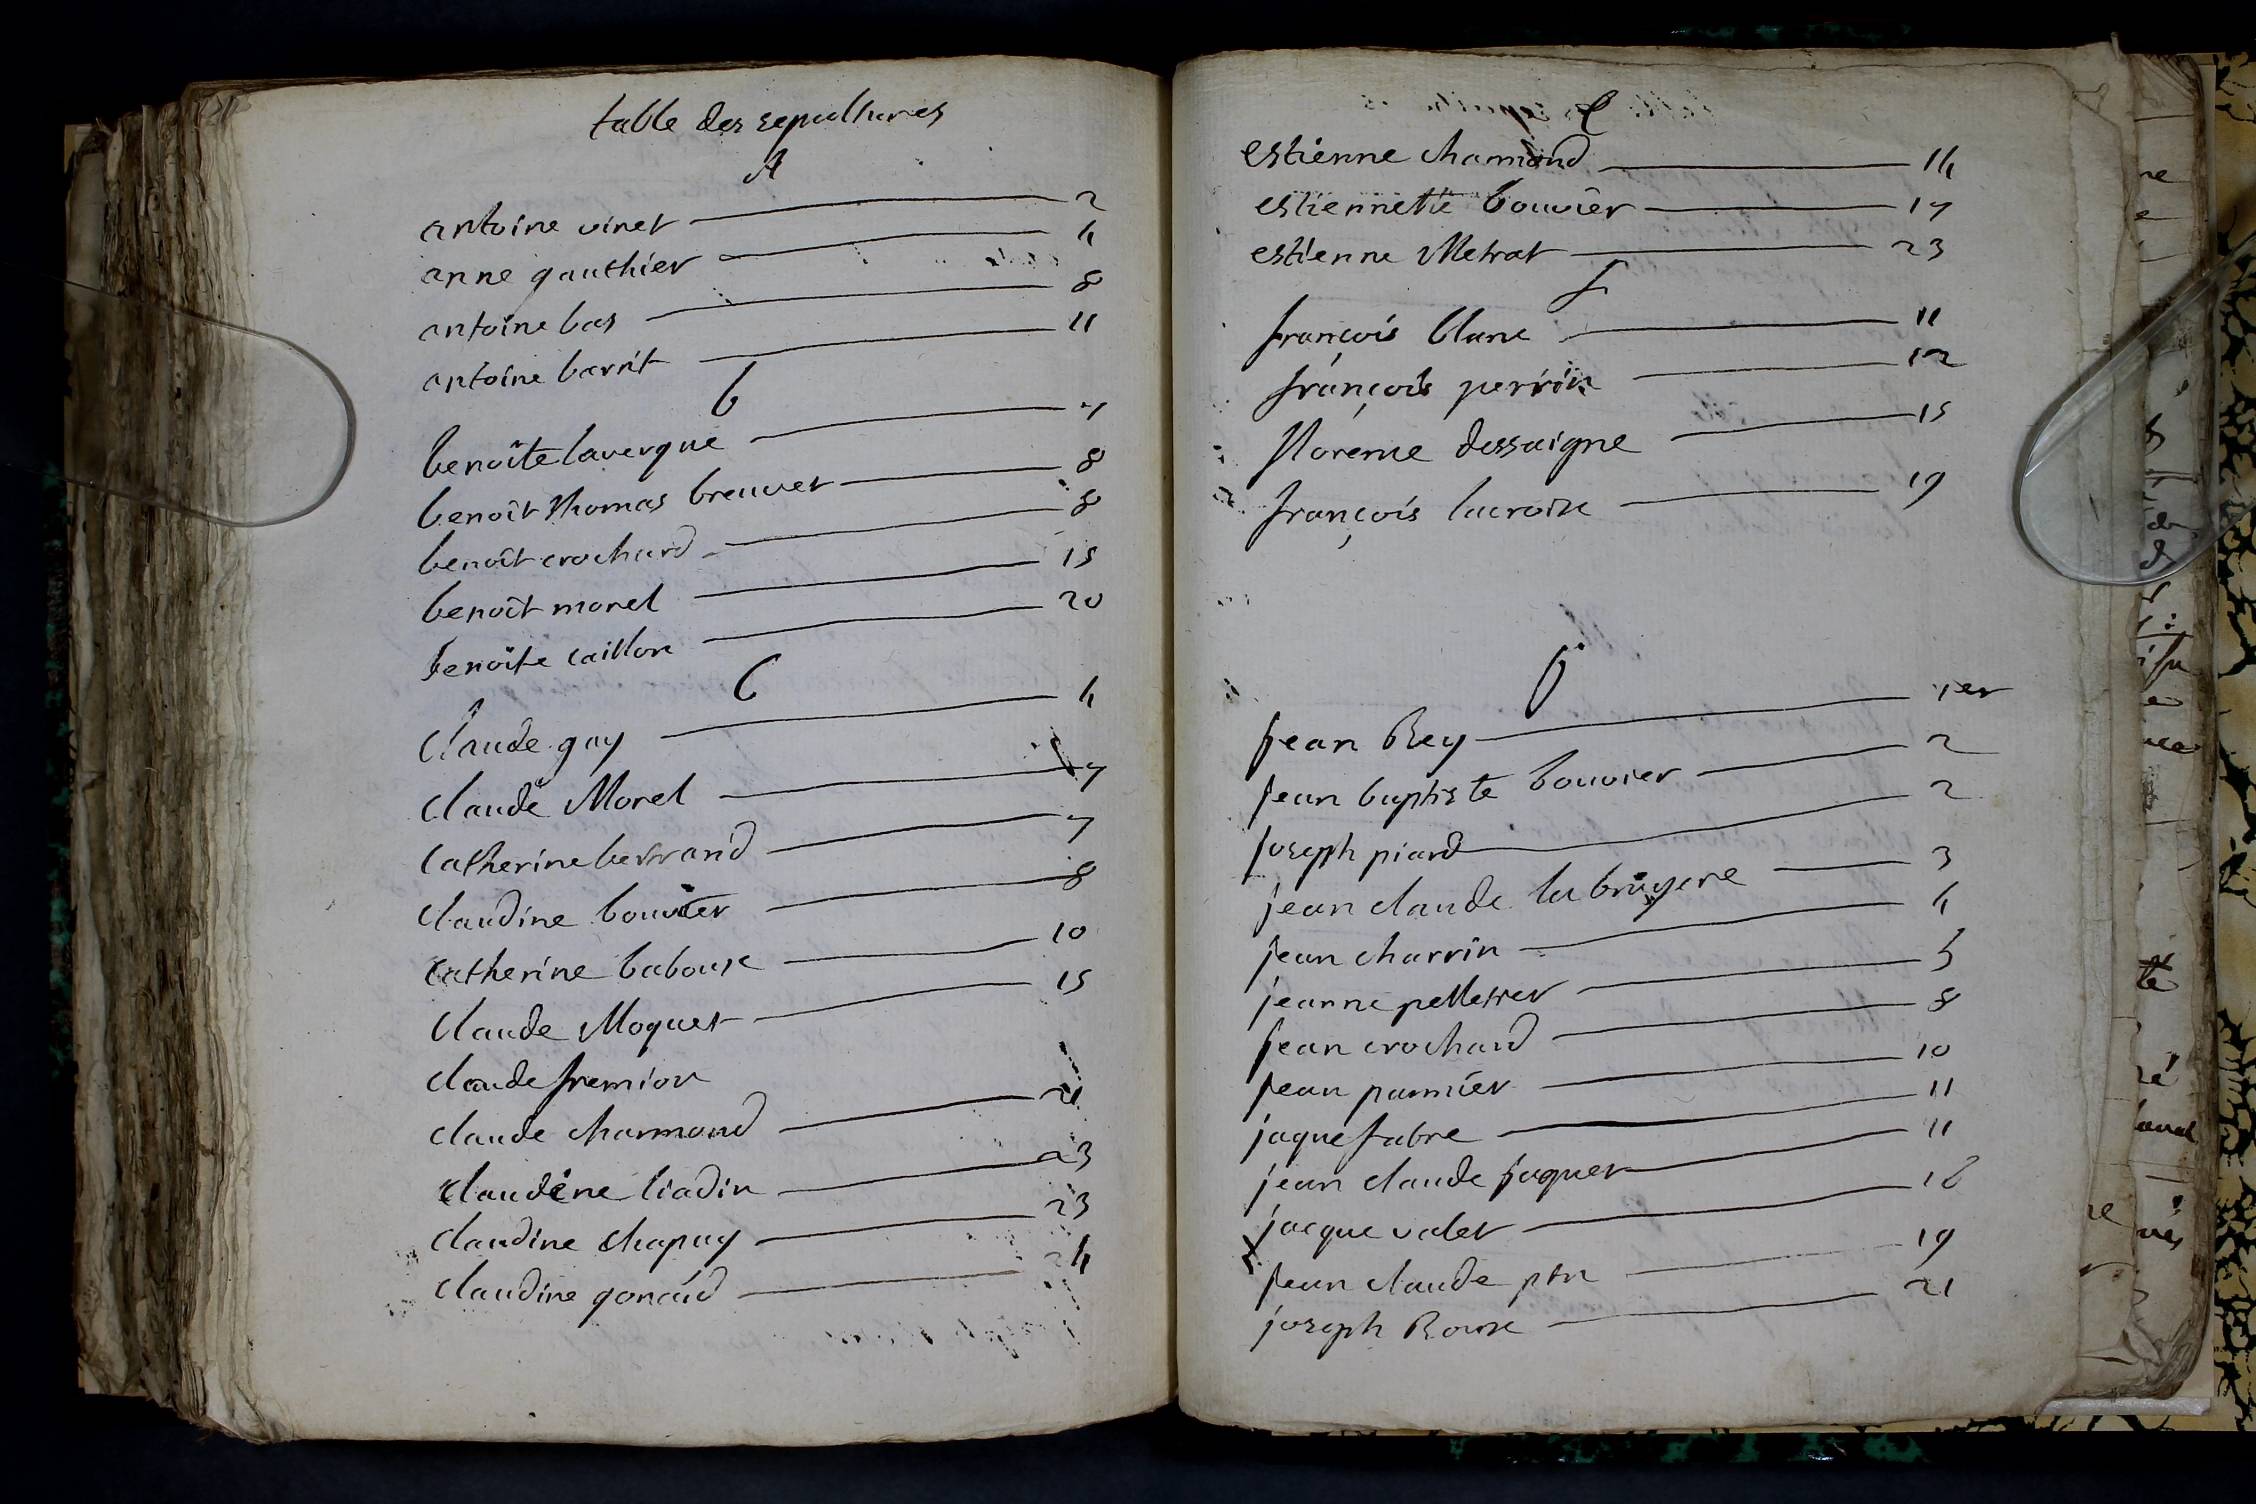 table des sepultures
A
antoine vinet 2
anne gauthier 4
antoine bas 8
antoine barrit 11
b
benoîte lavergne 7
benoît thomas brenuet 8
benoît crochard 8
benoît morel 15
benoîte caillon 20
C
Claude guy 4
Claude Morel 7
Catherine bertrand 7
Claudine bouvier 8
Catherine baboux 10
Claude Moquet 15
Claude fremion
Claude charmond 21
Claudine liadin 23
Claudine chapuy 23
Claudine gonaud 24
E
estienne chamond 14
estiennette bouvier 17
estienne Metrat 23
f
françois blanc 11
françois perrin 12
florence dessaigne 15
françois lacroix 19
J
jean Rey 1er
jean baptiste bouvier 2
joseph piard 2
jean claude la bruyere 3
jean charrin 4
jeanne pelletier 5
jean crochard 8
jean pannier 10
jaque fabre 11
jean claude jaquet 11
jacque valet 16
jean claude 19
joseph Roux 21